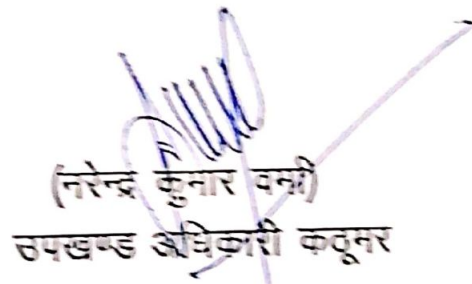 (नरेन्द्र कुमार वर्मा)
उपखण्ड अधिकारी कठूमर